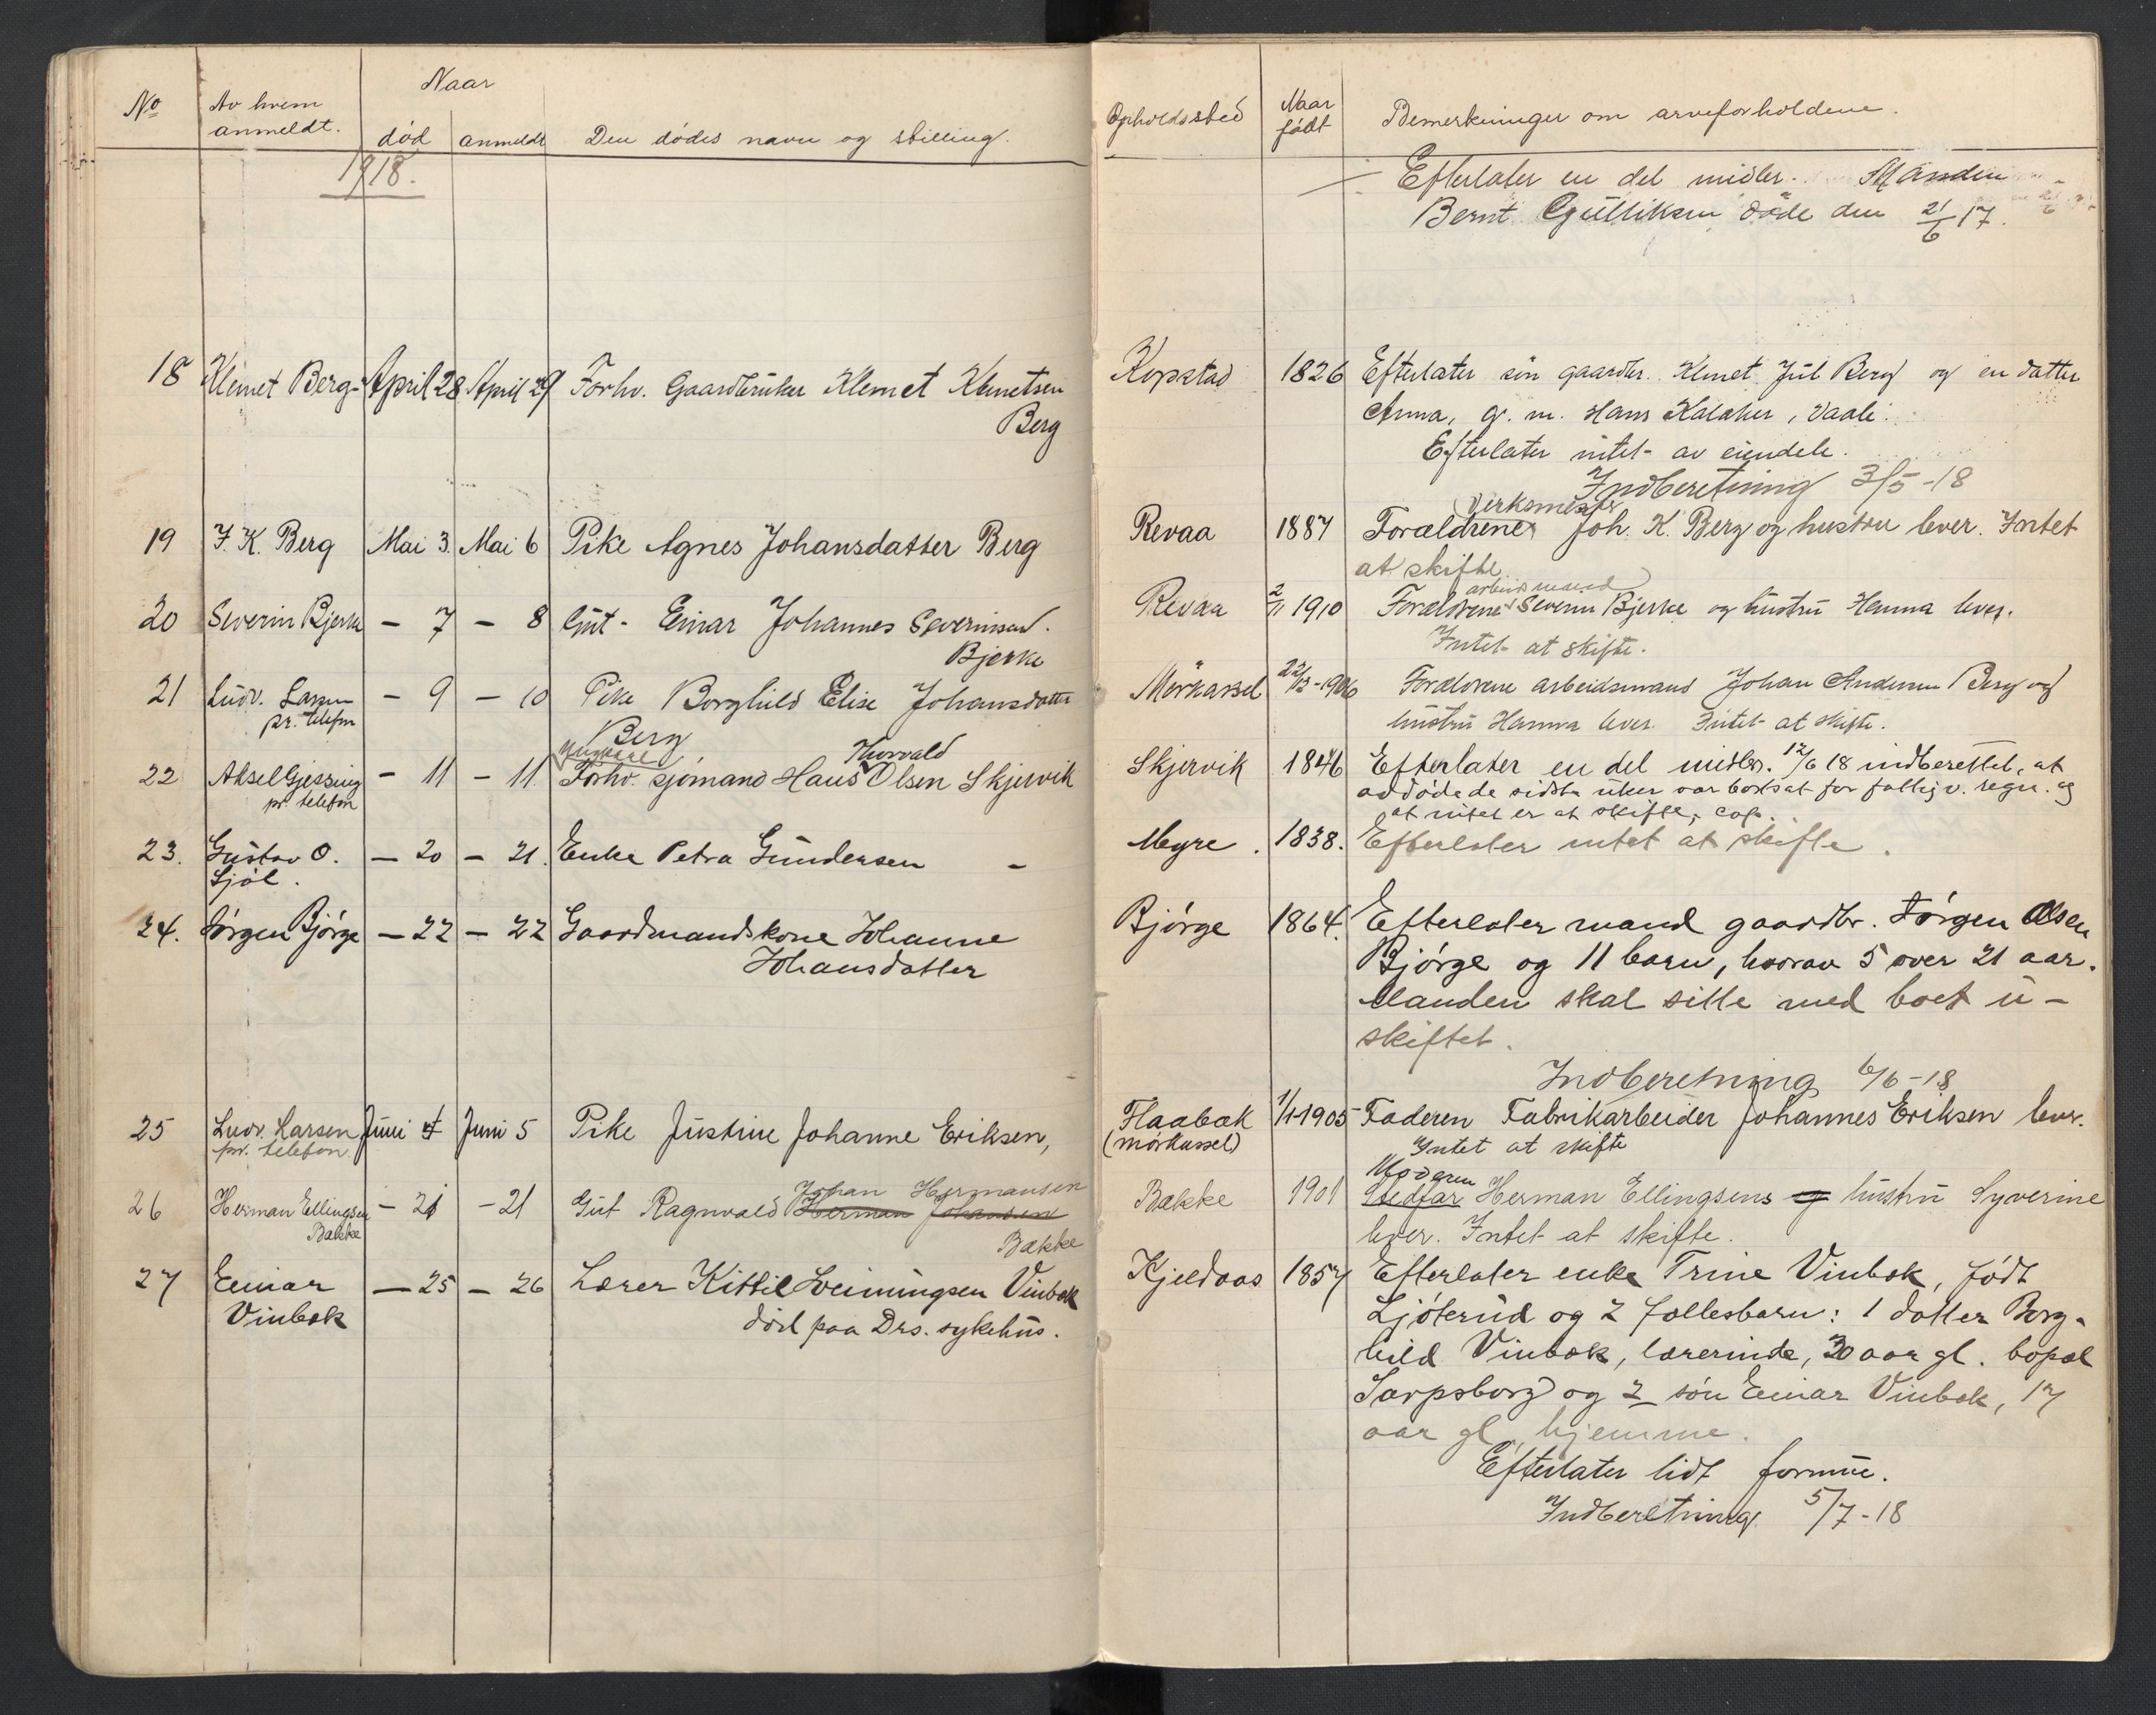 Naar
No
Av hvem
anmeldt.
død
anmeldt
Den dødes navn og stilling.
Opholdssted
Naar
født
Bemerkninger om arveforholdene.
1918.
Efterlater en del midler. Manden
Bernt Gulliksen døde den 21/6 17.
18 Klemet Berg April 28 April 29 Forhv. Gaardbruker Klemet Klemetsen
Berg
Kopstad 1826 Efterlater søn gaardbr. Klemet Jul Berg og en datter
Anna, g. m. Hans Kalaker, Vaale.
Efterlater intet av eiendele.
Indberetning 3/5-18
19 J. K. Berg Mai 3. Mai 6 Pike Agnes Johansdatter Berg
Revaa 1887 Forældrene Verksmester Joh. K. Berg og hustru lever. Intet
at skifte
20 Severin Bjerke - 7 - 8 Gut Einar Johannes Severinsen
Bjerke
Revaa 2/11 1910 Forældrene arbeidsmand Severin Bjerke og hustru Hanna lever.
Intet at skifte.
21 Ludv. Larsen - 9 - 10 Pike Borghild Elise Johansdatter
pr. telefon
Berg
Mørkassel 22/3-1906 Forældrene arbeidsmand Johan Andersen Berg og
hustru Hanna lever. Intet at skifte.
22 Aksel Gjessing - 11 - 11 Ungkarl Forhv. sjømand Hans Thorvald Olsen Skjervik
pr. telefon
Skjervik 1846 Efterlater en del midler. 12/6 18 indberettet, at
avdøde de sidste uker var bortsat for fattigv. regn. og
at intet er at skifte,
23. Gustav O. - 20 - 21. Enke Petra Gundersen -
Sjøl.
Meyre. 1838. Efterlater intet at skifte.
24. Jørgen Bjørge - 22 - 22 Gaardmandskone Johanne
Johansdatter
Bjørge 1864. Efterlater mand gaardbr. Jørgen Olsen
Bjørge og 11 barn, hvorav 5 over 21 aar.
Manden skal sitte med boet u-
skiftet.
Indberetning 6/6-18
25 Ludv. Larsen Juni 4 Juni 5 Pike Justine Johanne Eriksen,
pr. telefon
Flaabæk 1/1-1905 Faderen Fabrikarbeider Johannes Eriksen lever.
(mørkassel) Intet at skifte
26 Herman Ellingsen - 21 - 21 Gut Ragnvald Herman Johansen Johan Hermansen
Bakke Bakke
Bakke 1901 Stedfar Moderen Herman Ellingsens og hustru Syverine
lever. Intet at skifte.
27 Einar - 25 - 26 Lærer Kittil Sveinungsen Vinbæk
Vinbæk død paa Drs. sykehus.
Kjeldaas 1857 Efterlater enke Trine Vinbæk, født
Ljøterud og 2 fællesbarn: 1 datter Borg-
hild Vinbæk, lærerinde, 20 aar gl. bopæl
Sarpsborg og 2 søn Einar Vinbæk, 17
aar gl. hjemme.
Efterlater lidt formue.
Indberetning 5/7-18